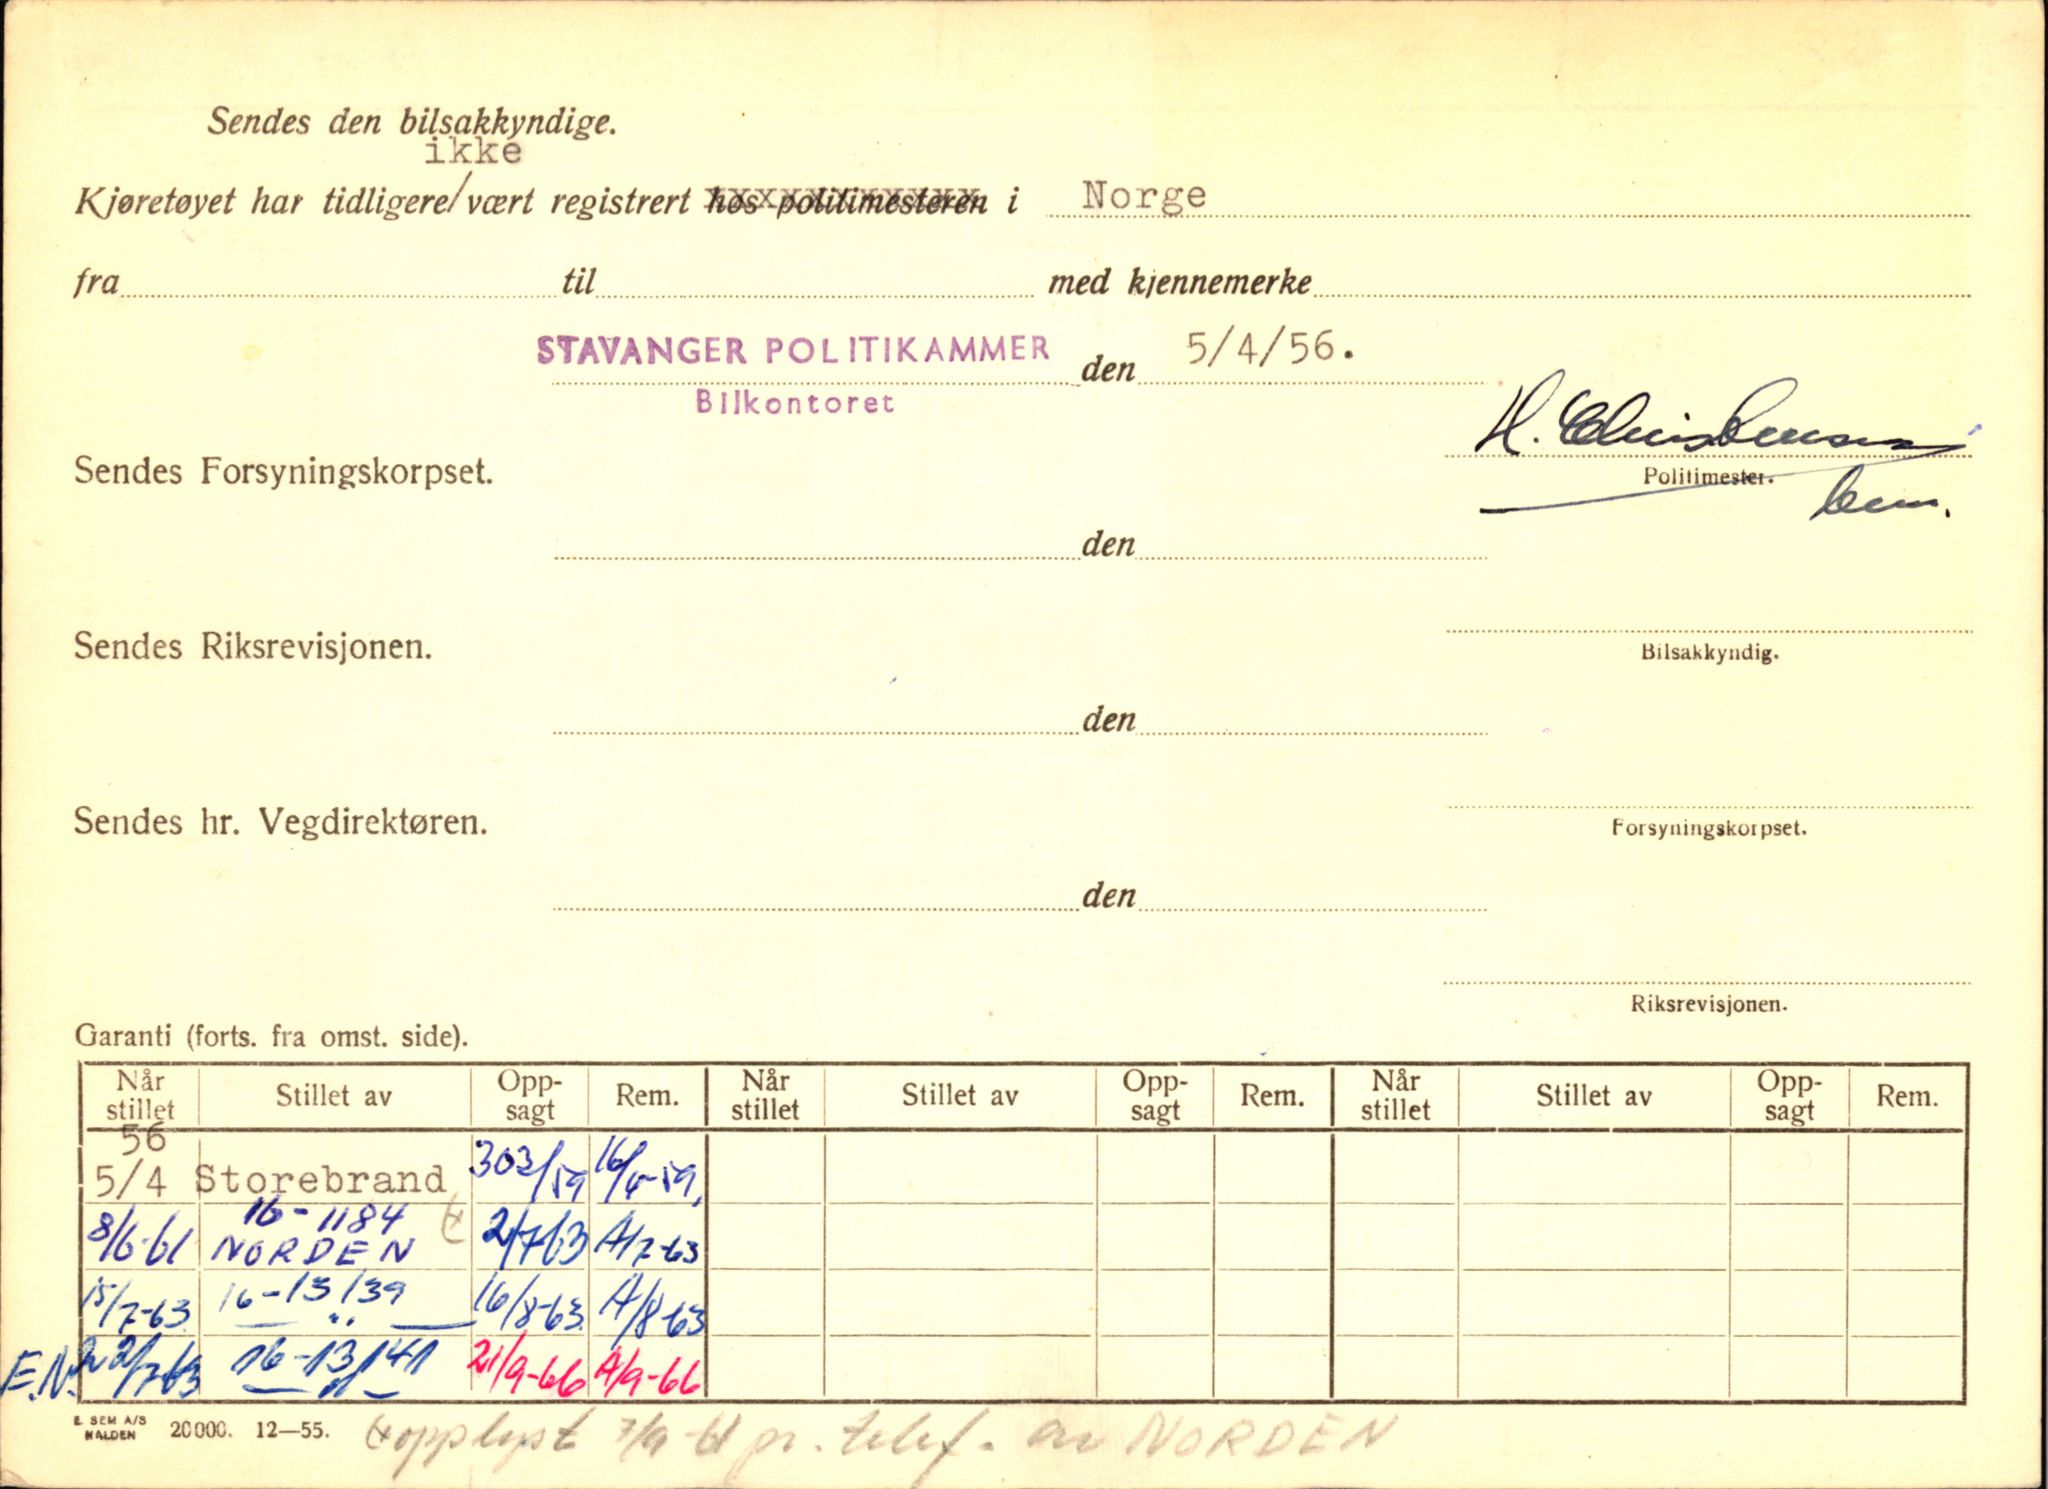 Sendes den bilsakkyndige.
ikke
Kjøretøyet har tidligere/vært registrert hos politimesteren i Norge
fra til med kjennemerke
STAVANGER POLITIKAMMER den 5/4/56.
Bilkontoret
H. Christensen
Sendes Forsyningskorpset.
Politimester.
den
Sendes Riksrevisjonen.
Bilsakkyndig.
den
Sendes hr. Vegdirektøren.
Forsyningskorpset.
den
Riksrevisjonen.
Garanti (forts. fra omst. side).
Når stillet Stillet av Opp-sagt Rem. Når stillet Stillet av Opp-sagt Rem. Når stillet Stillet av Opp-sagt Rem.
56
5/4 Storebrand 303/59 16/4-59,
16-1184
8/6-61 NORDEN 2/7-63 A/7-63
15/7-63 16-13139 — " — 16/8-63 A/8-63
E.N. 22/7-63 16-13141 — " — 21/9-66 A/9-66
E. SEM A/S
HALDEN 20000. 12—55.
x opplyst 7/9-61 pr. telef. av NORDEN